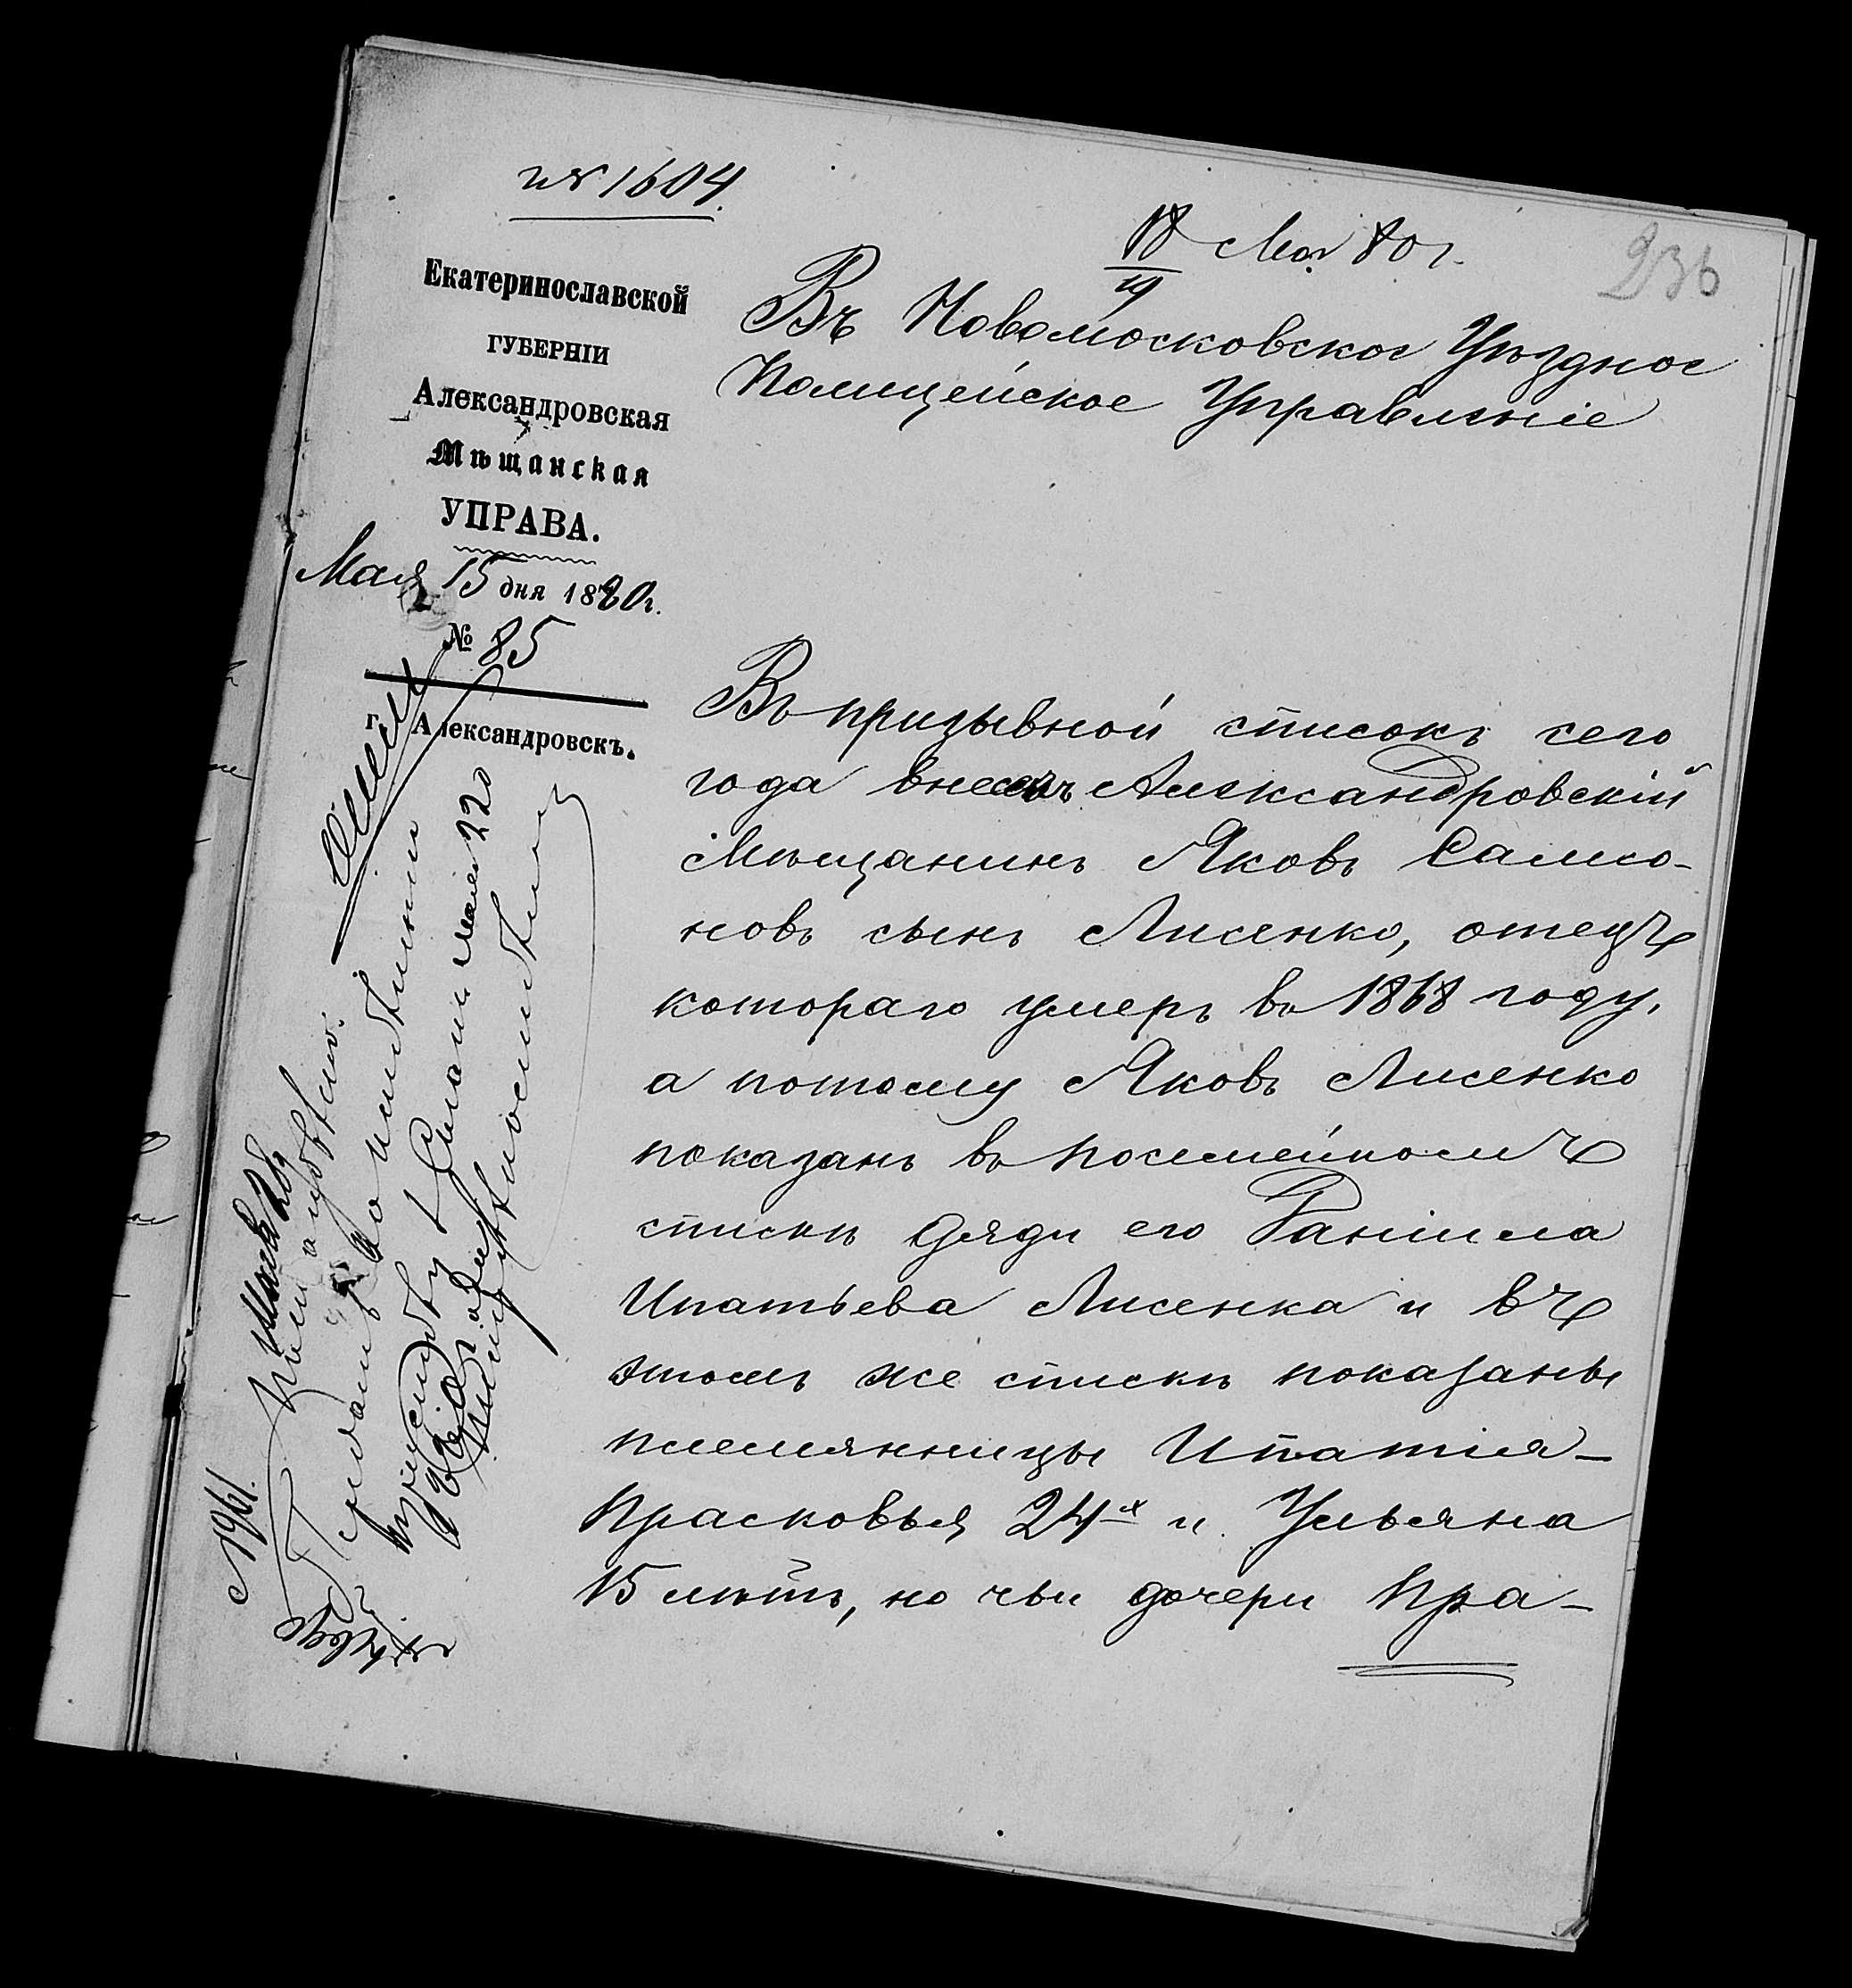 № 1604.
18 Мая 80 г.
19
236
Екатеринославской
ГУБЕРНІИ
Александровская
Мѣщанская
УПРАВА.
Мая 15 дня 1880 г.
№ 85
г. Александровскъ.
Въ Новомосковское Уѣздное
Полицейское Управленіе
Въ призывной списокъ сего
года внесенъ Александровскій
Мѣщанинъ Яковъ Самсо-
новъ сынъ Лисенко, отецъ
котораго умеръ въ 1868 году,
а потому Яковъ Лисенко
показанъ въ посемейномъ
спискѣ дяди его Даніила
Ипатьева Лисенка и въ
этомъ же спискѣ показаны
племянницы Ипатія-
Прасковья 24х и Ульяна
15 лѣтъ, но чьи дочери Пра-
№ 1961.
Мая 20